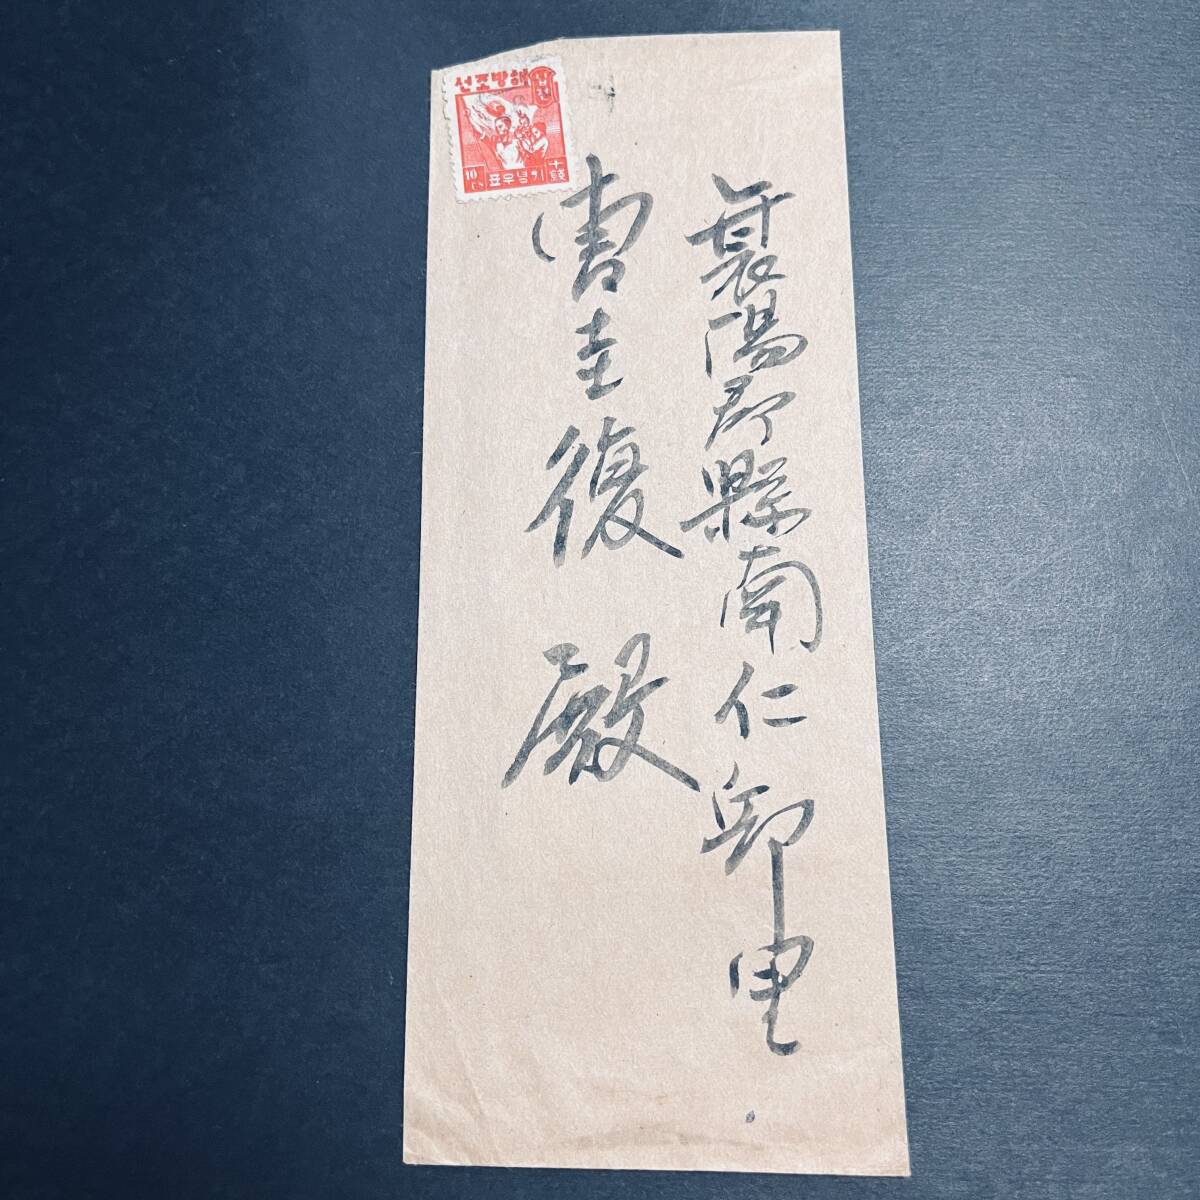 해방조선
십전
10
기념우표
十錢
襄陽郡縣南仁邱里
圭復 殿